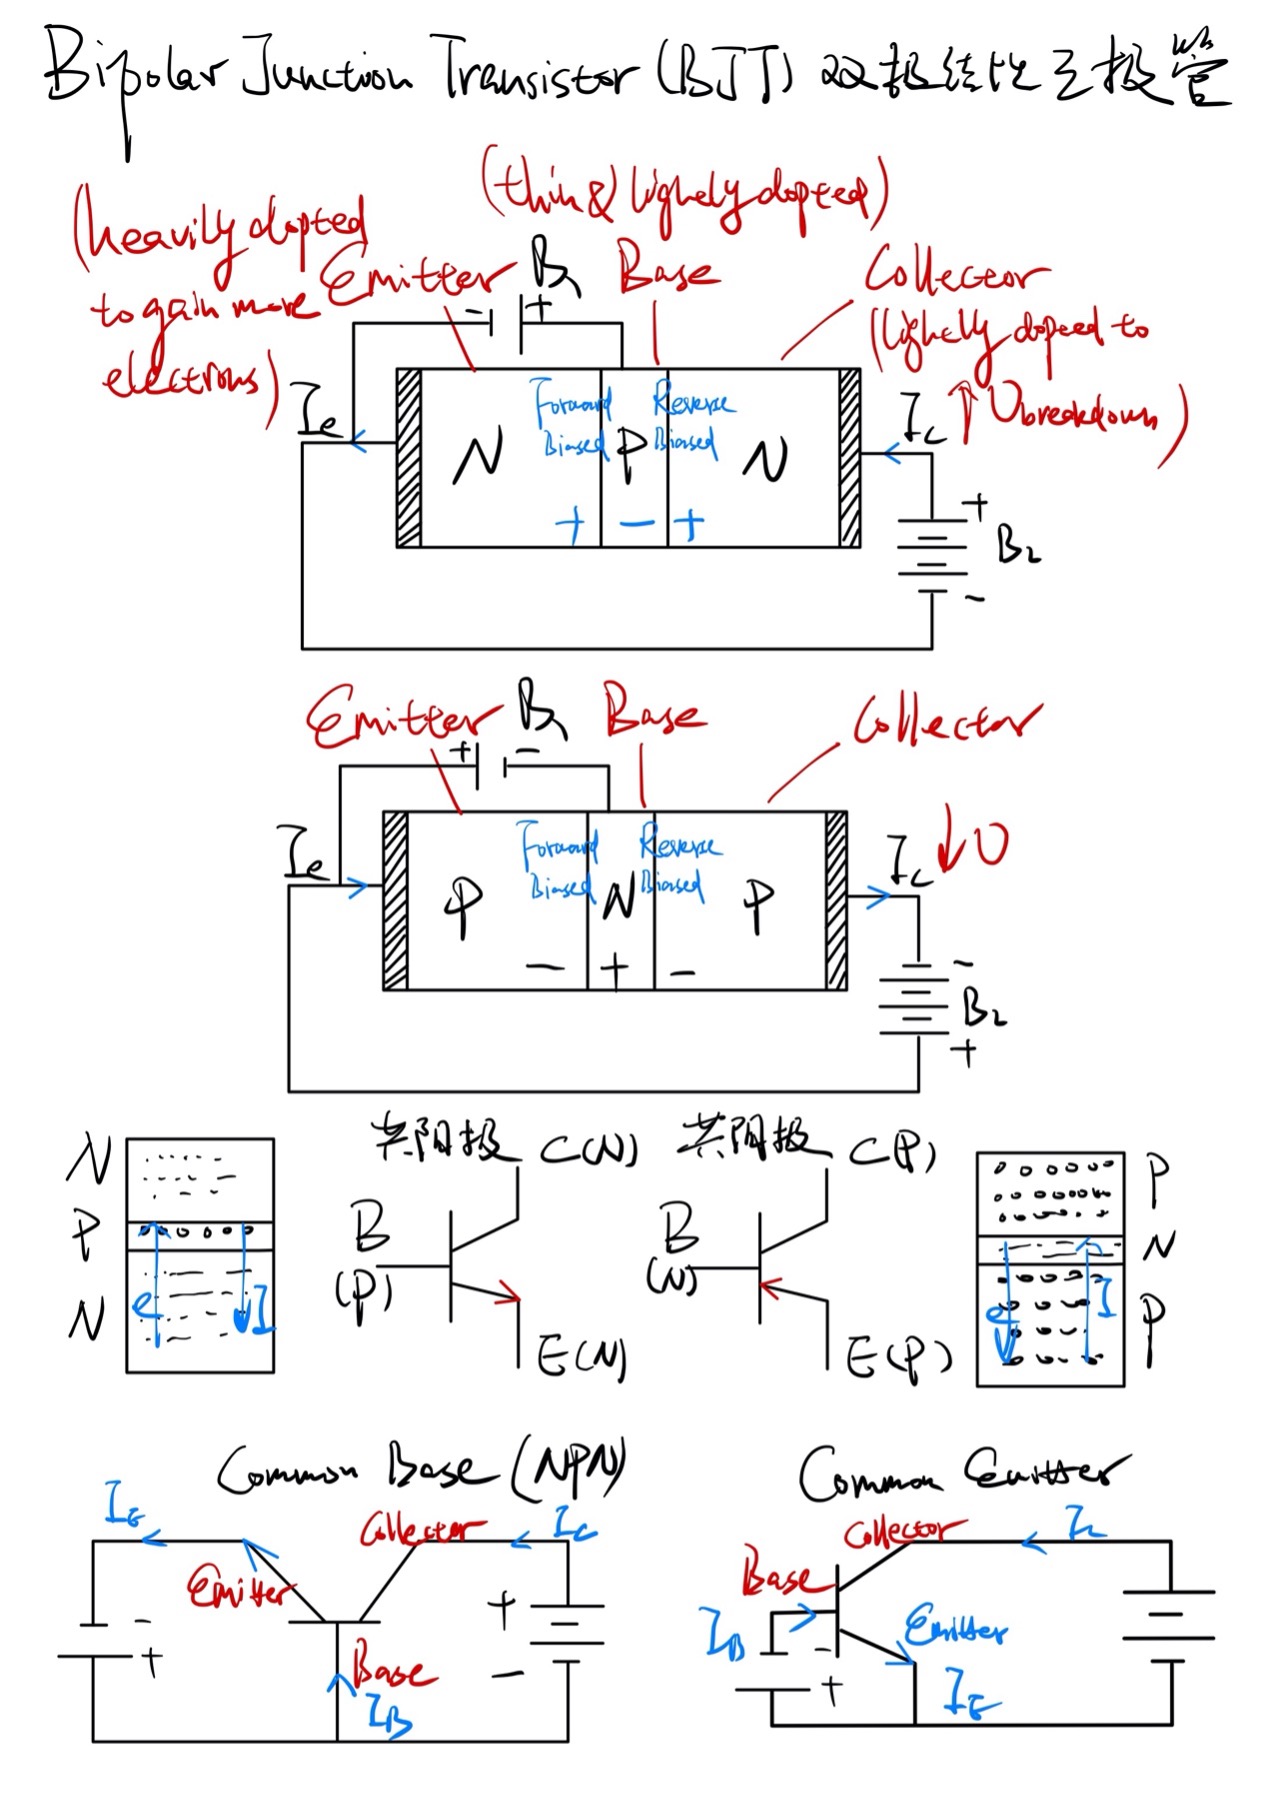 Bipolar Junction Transistor (BJT) 双极结性三极管
(thin & lighely dopted)
(heavily dopted
to gain more
electrons)
Emitter
B1
Base
Collector
(lighely dopeed to
↑ Ubreakdown)
- +
Ie
Forward
Biased
Reverse
Biased
Ic
N P N
+ - +
+
B2
-
Emitter
B1
Base
Collector
+ -
Ie
Forward
Biased
Reverse
Biased
Ic
↓U
P N P
- + -
-
B2
+
N
P
N
e
I
共阳极
C(N)
B
(P)
E(N)
共阴极
C(P)
B
(N)
E(P)
P
N
P
e
I
Common Base (NPN)
IE
Collector
Ic
Emitter
-
+
+
-
Base
IB
Common Emitter
Collector
Ic
Base
IB
Emitter
-
+
IE